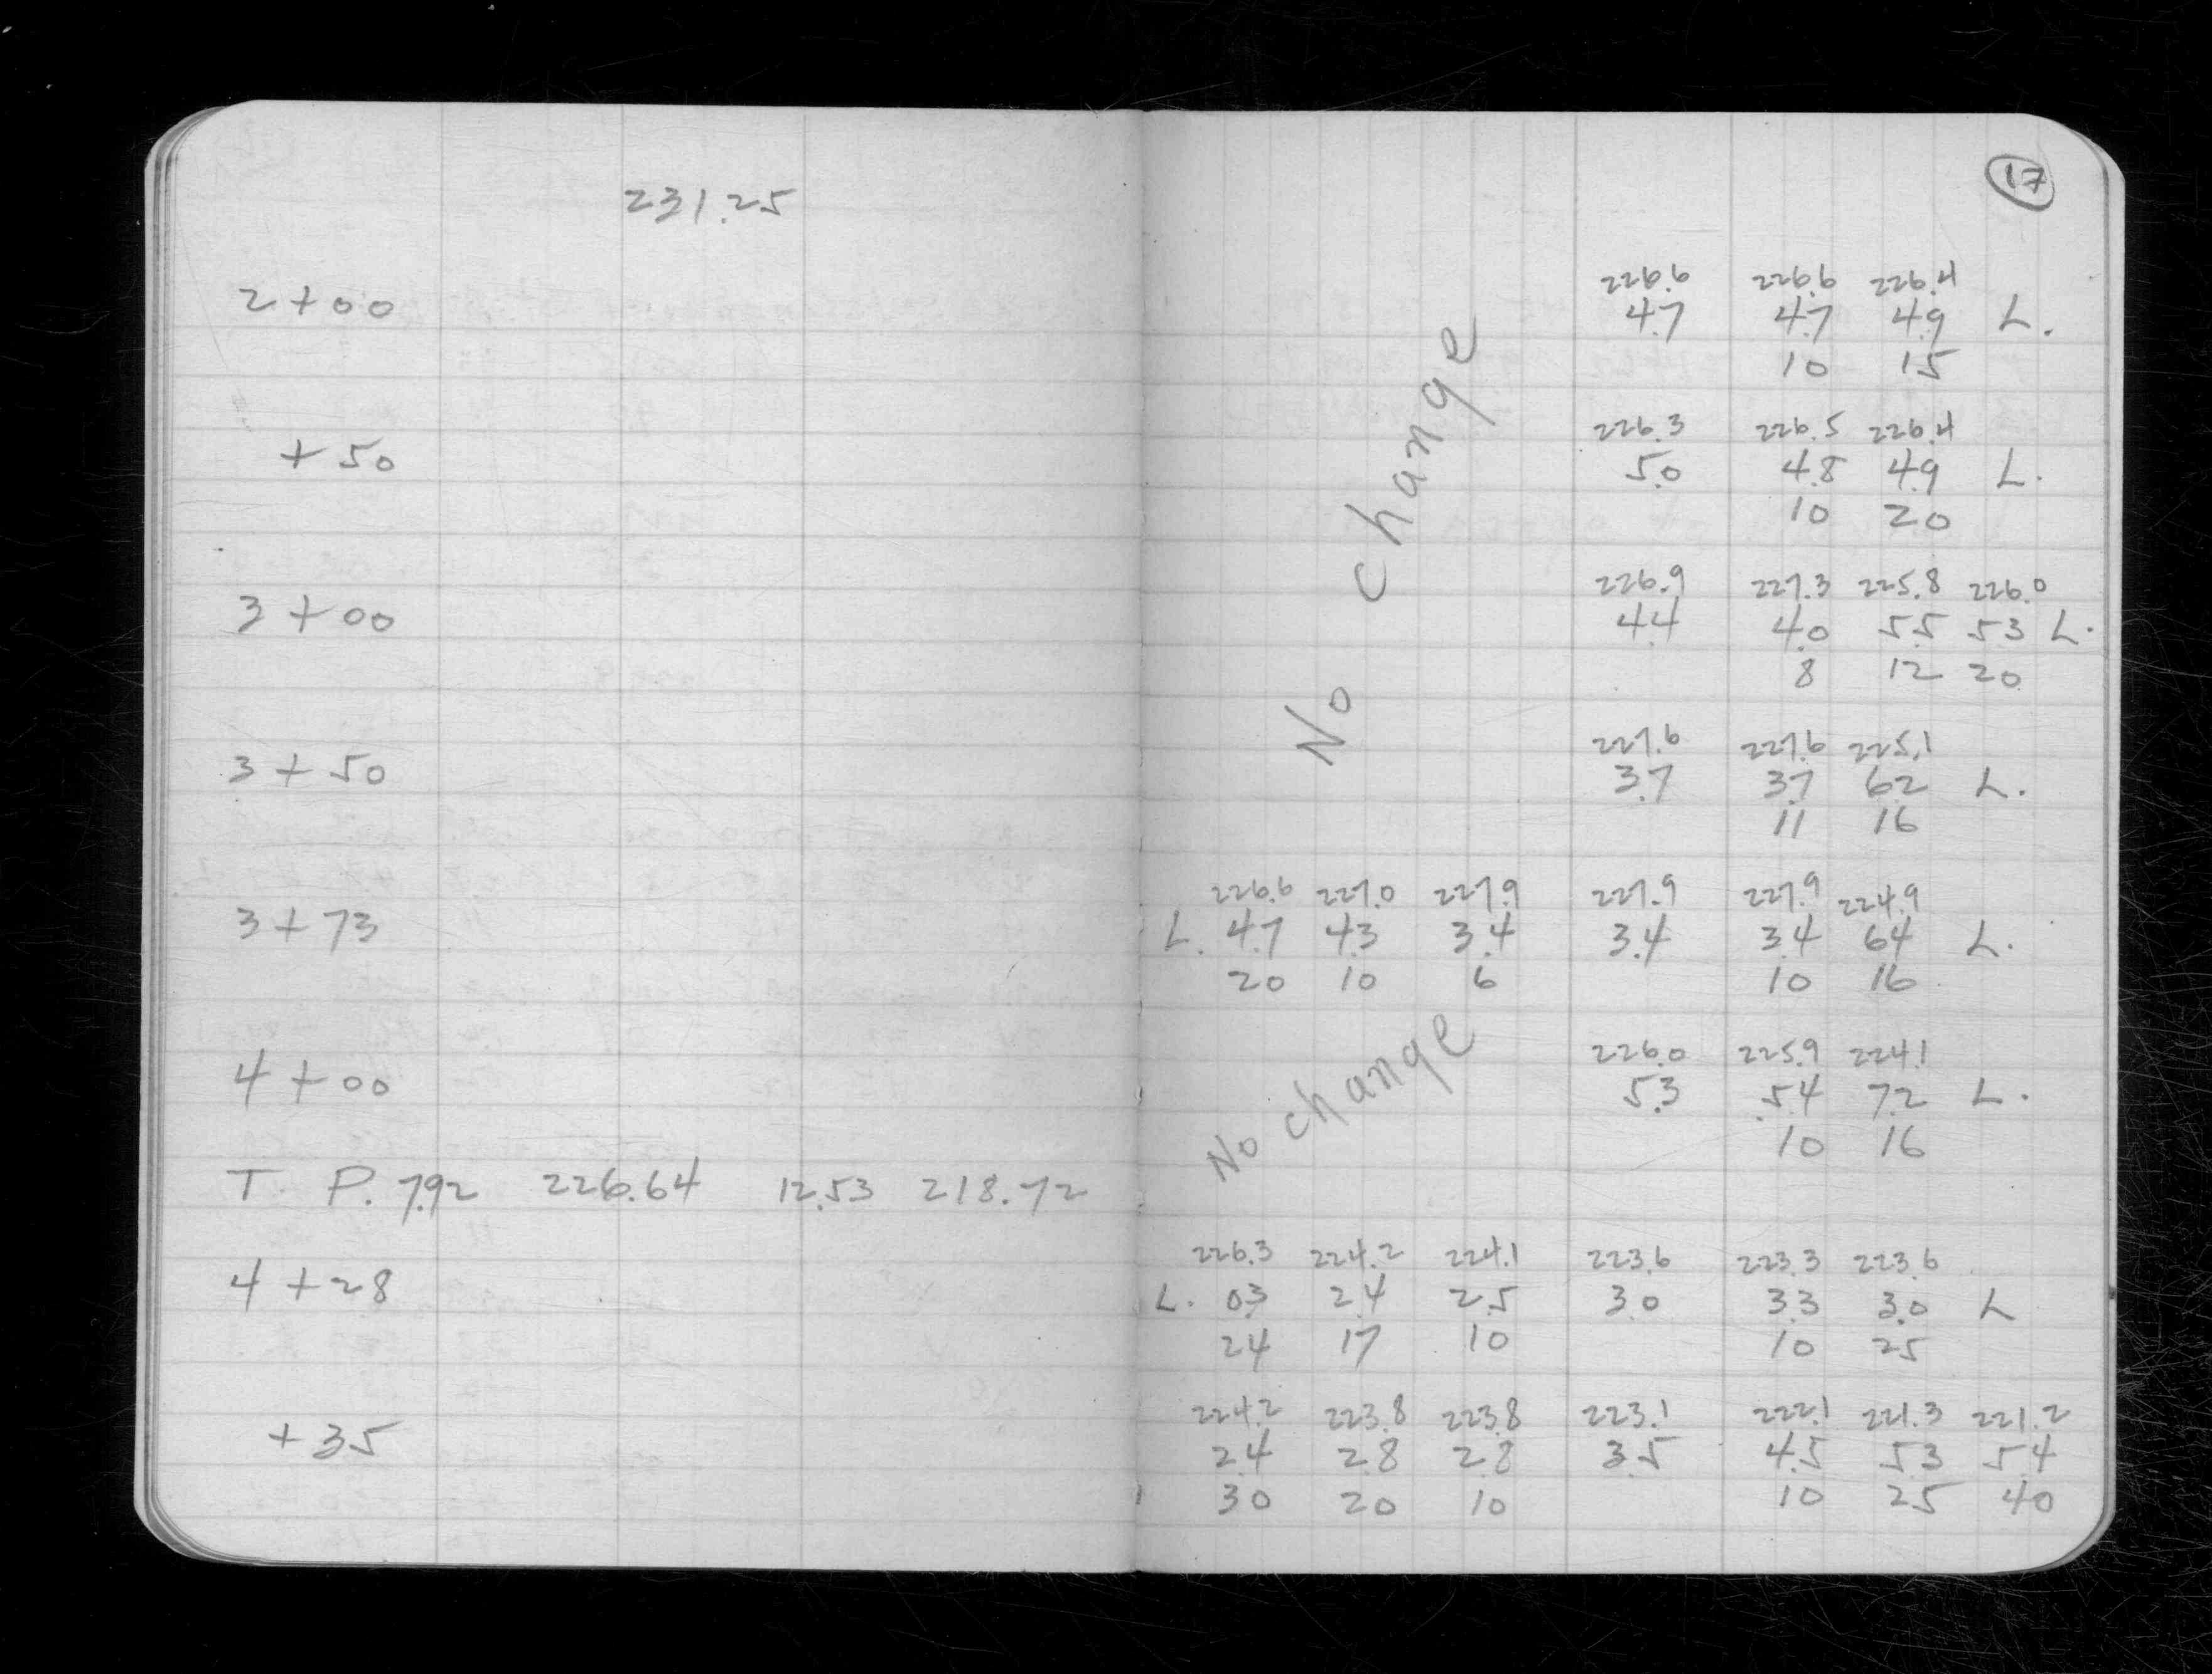 17
231.25
226.6 226.6 226.4
2+00 4.7 4.7 4.9 L.
10 15
226.3 226.5 226.4
+50 5.0 4.8 4.9 L.
10 20
No change
226.9 227.3 225.8 226.0
3+00 4.4 4.0 5.5 5.3 L.
8 12 20
227.6 227.6 225.1
3+50 3.7 3.7 6.2 L.
11 16
226.6 227.0 227.9 227.9 227.9 224.9
3+73 L. 4.7 4.3 3.4 3.4 3.4 6.4 L.
20 10 6 10 16
No change
226.0 225.9 224.1
4+00 5.3 5.4 7.2 L.
10 16
T. P. 7.92 226.64 12.53 218.72
226.3 224.2 224.1 223.6 223.3 223.6
4+28 L. 0.3 2.4 2.5 3.0 3.3 3.0 L
24 17 10 10 25
224.2 223.8 223.8 223.1 222.1 221.3 221.2
+35 2.4 2.8 2.8 3.5 4.5 5.3 5.4
30 20 10 10 25 40